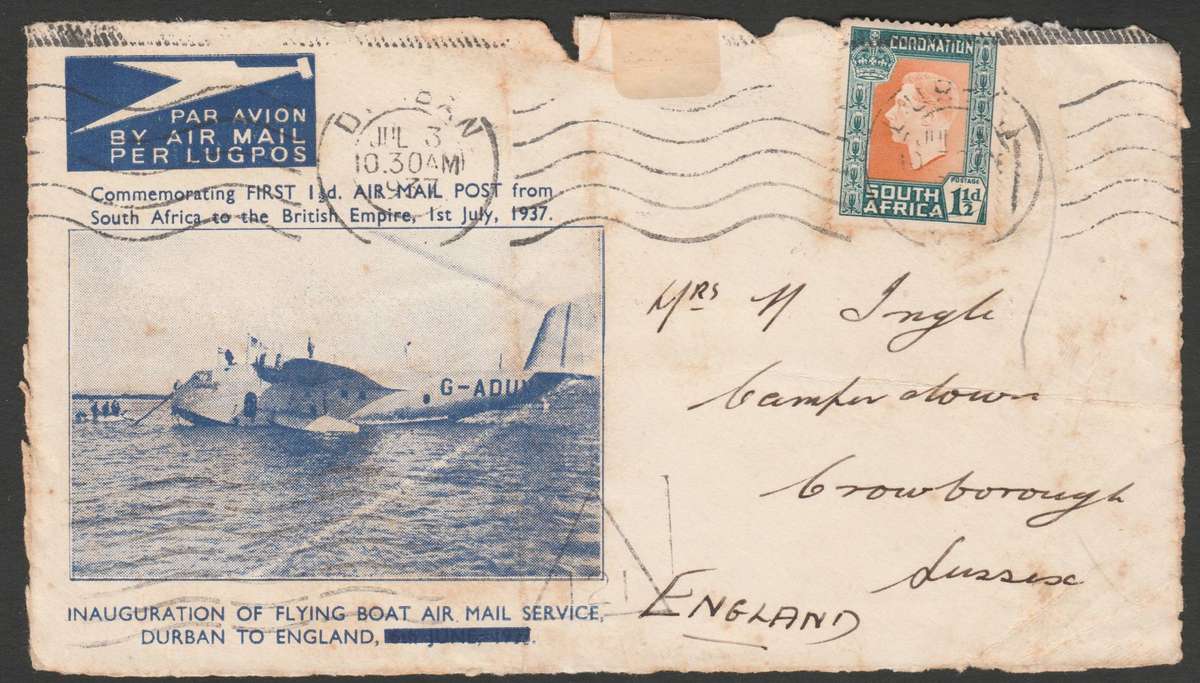 PAR AVION
BY AIR MAIL
PER LUGPOS
Commemorating FIRST 1½d. AIR MAIL POST from
South Africa to the British Empire, 1st July, 1937.
DURBAN
JUL 3
10.30 AM
1937
CORONATION
POSTAGE
SOUTH
AFRICA
1½d
G-ADU
Mrs N Ingle
Camperdown
Crowborough
Sussex
ENGLAND
INAUGURATION OF FLYING BOAT AIR MAIL SERVICE,
DURBAN TO ENGLAND,